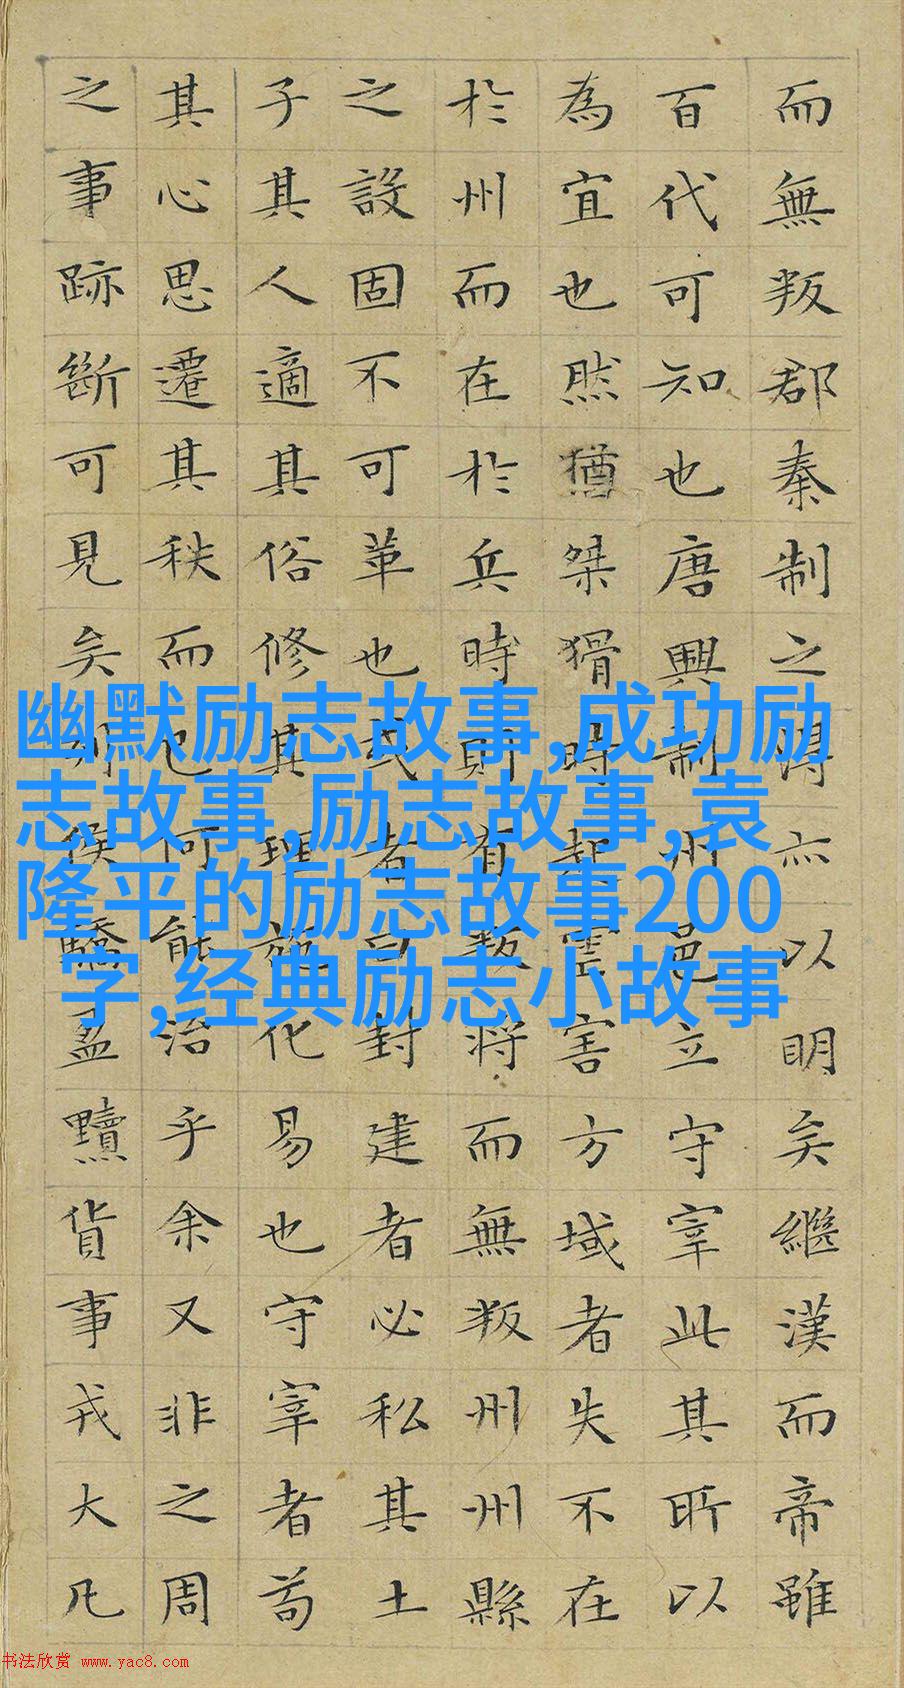 而無叛郡秦制之得亦以明矣繼漢而帝雖
百代可知也唐興制州邑立守宰此其所以
為宜也然猶桀猾時起虐害方域者失不在
於州而在於兵時則有叛將而無叛州州縣
之設固不可革也或者曰封建者必私其土
子其人適其俗修其理施化易也守宰者苟
其心思遷其秩而已何能治乎余又非之周
之事跡斷可見矣列侯驕盈黷貨事戎大凡
幽默励志故事,成功励
志故事,励志故事,袁
隆平的励志故事200
字,经典励志小故事
书法欣赏 www.yac8.com